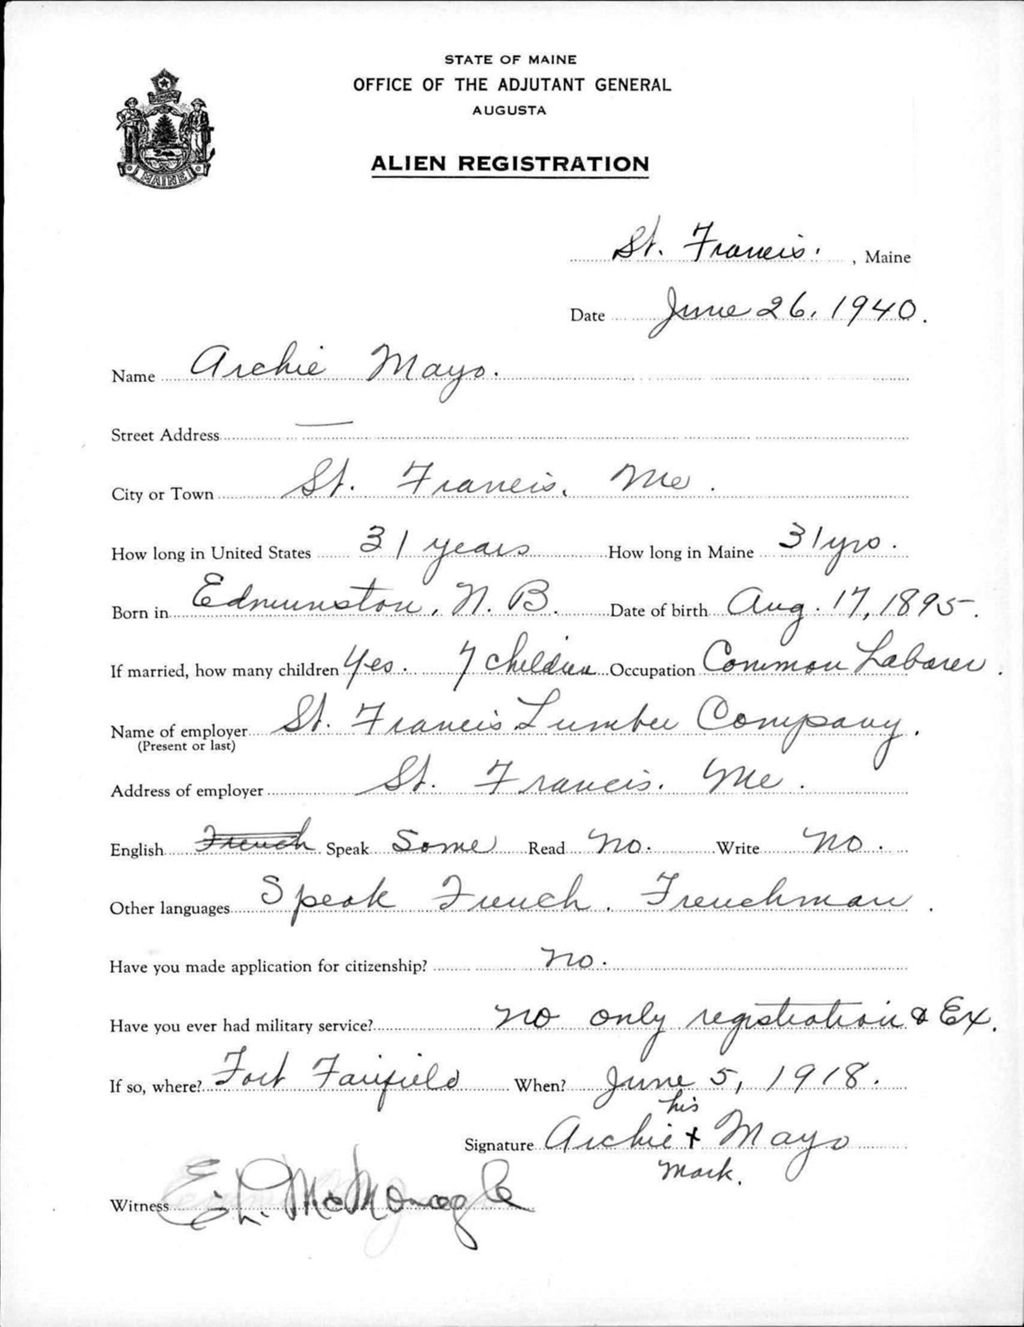 STATE OF MAINE
OFFICE OF THE ADJUTANT GENERAL
AUGUSTA
ALIEN REGISTRATION
MAINE
St. Francis. , Maine
Date June 26, 1940.
Name Archie Mayo.
Street Address —
City or Town St. Francis, Me.
How long in United States 31 years How long in Maine 31 yrs.
Born in Edmunston, N. B. Date of birth Aug. 17, 1895.
If married, how many children Yes. 7 children Occupation Common Laborer.
Name of employer St. Francis Lumber Company.
(Present or last)
Address of employer St. Francis, Me.
English French Speak Some Read No. Write No.
Other languages Speak French. Frenchman.
Have you made application for citizenship? no.
Have you ever had military service? no only registration & Ex.
If so, where? Fort Fairfield When? June 5, 1918.
his
Signature Archie x Mayo
Mark.
Witness E. L. McMonagle